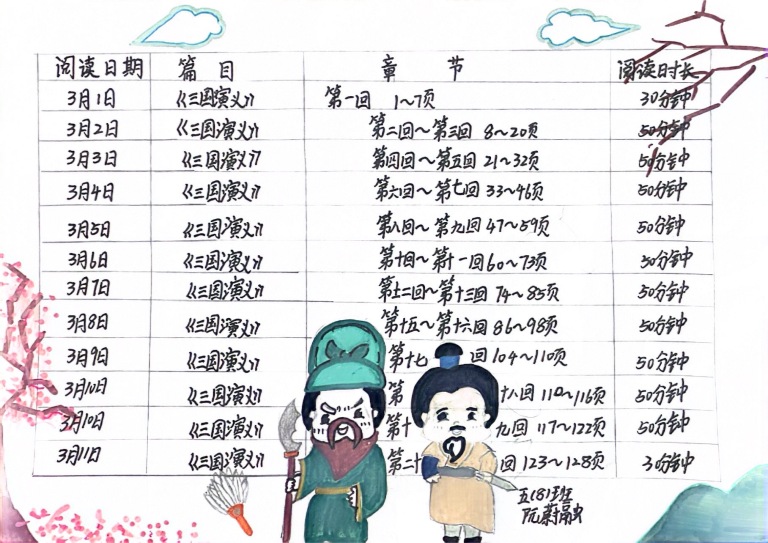 阅读日期 篇目 章节 阅读时长
3月1日 《三国演义》 第一回 1~7页 30分钟
3月2日 《三国演义》 第二回~第三回 8~20页 50分钟
3月3日 《三国演义》 第四回~第五回 21~32页 50分钟
3月4日 《三国演义》 第六回~第七回 33~46页 50分钟
3月5日 《三国演义》 第八回~第九回 47~59页 50分钟
3月6日 《三国演义》 第十回~第十一回 60~73页 50分钟
3月7日 《三国演义》 第十二回~第十三回 74~85页 50分钟
3月8日 《三国演义》 第十五~第十六回 86~98页 50分钟
3月9日 《三国演义》 第十七 回 104~110页 50分钟
3月10日 《三国演义》 第 十八回 110~116页 50分钟
3月10日 《三国演义》 第十 九回 117~122页 50分钟
3月11日 《三国演义》 第二十 回 123~128页 30分钟
五(8)班
阮蔚融